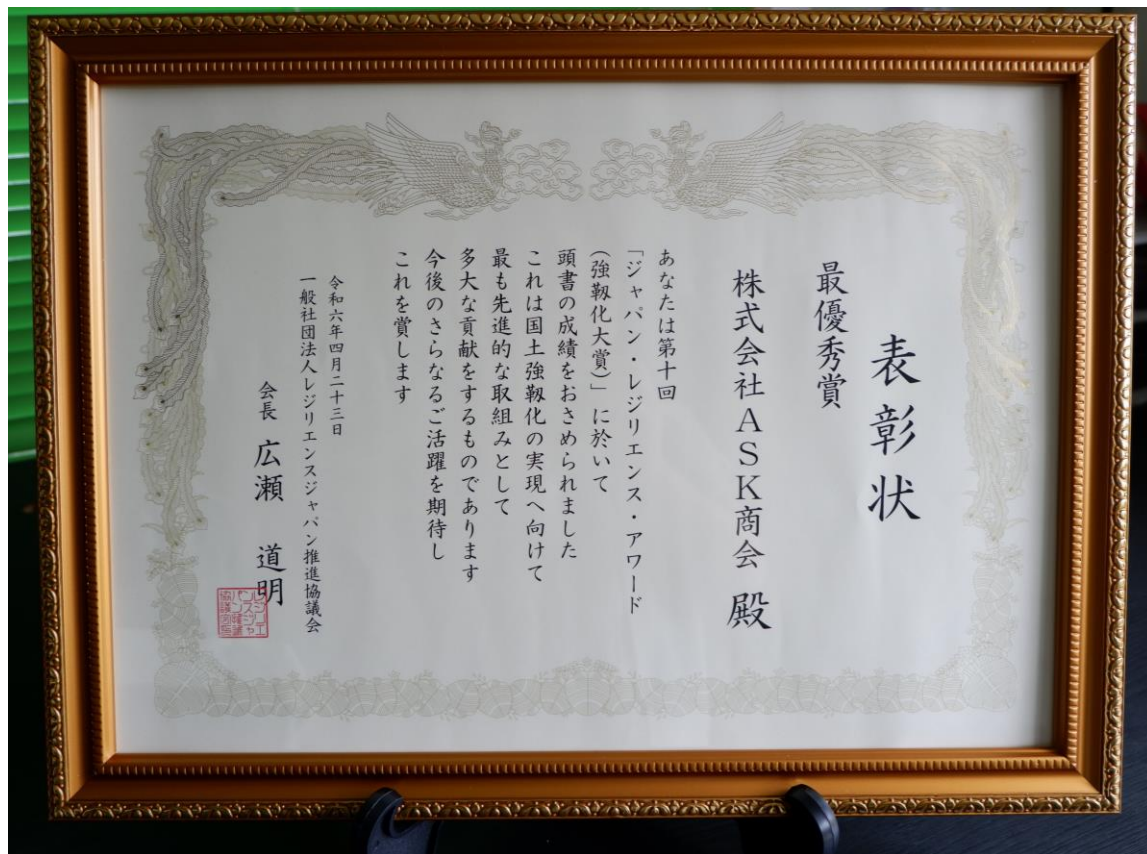 表彰状
最優秀賞
株式会社ASK商会 殿
あなたは第十回
「ジャパン・レジリエンス・アワード
(強靱化大賞)」に於いて
頭書の成績をおさめられました
これは国土強靱化の実現へ向けて
最も先進的な取組みとして
多大な貢献をするものであります
今後のさらなるご活躍を期待し
これを賞します
令和六年四月二十三日
一般社団法人レジリエンスジャパン推進協議会
会長 広瀬 道明